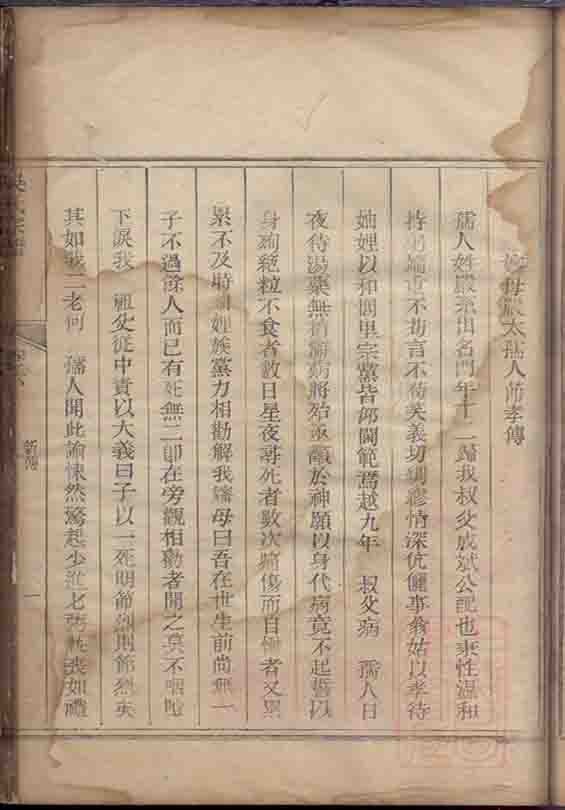 嬸母嚴太孺人節孝傳
孺人姓嚴系出名門年十二歸我叔父成斌公配也秉性溫和
持躬端重不茍言不茍笑義切綢繆情深伉儷事翁姑以孝待
妯娌以和閭里宗黨皆仰閫範焉越九年 叔父病 孺人日
夜待湯藥無稍 病將殆亟 於神願以身代病竟不起誓以
身殉絕粒不食者數日星夜尋死者數次痛傷而自 者又累
累不及時 娌族黨力相勸解我嬸母曰吾在世生前尚無一
子不過餘人而已有死無二卽在旁觀相勸者聞之莫不咽嗚
下淚我 祖父從中責以大義曰子以一死明節烈則節烈矣
其如我二老何 孺人聞此諭悚然驚起少進七粥 喪如禮
新傳
一